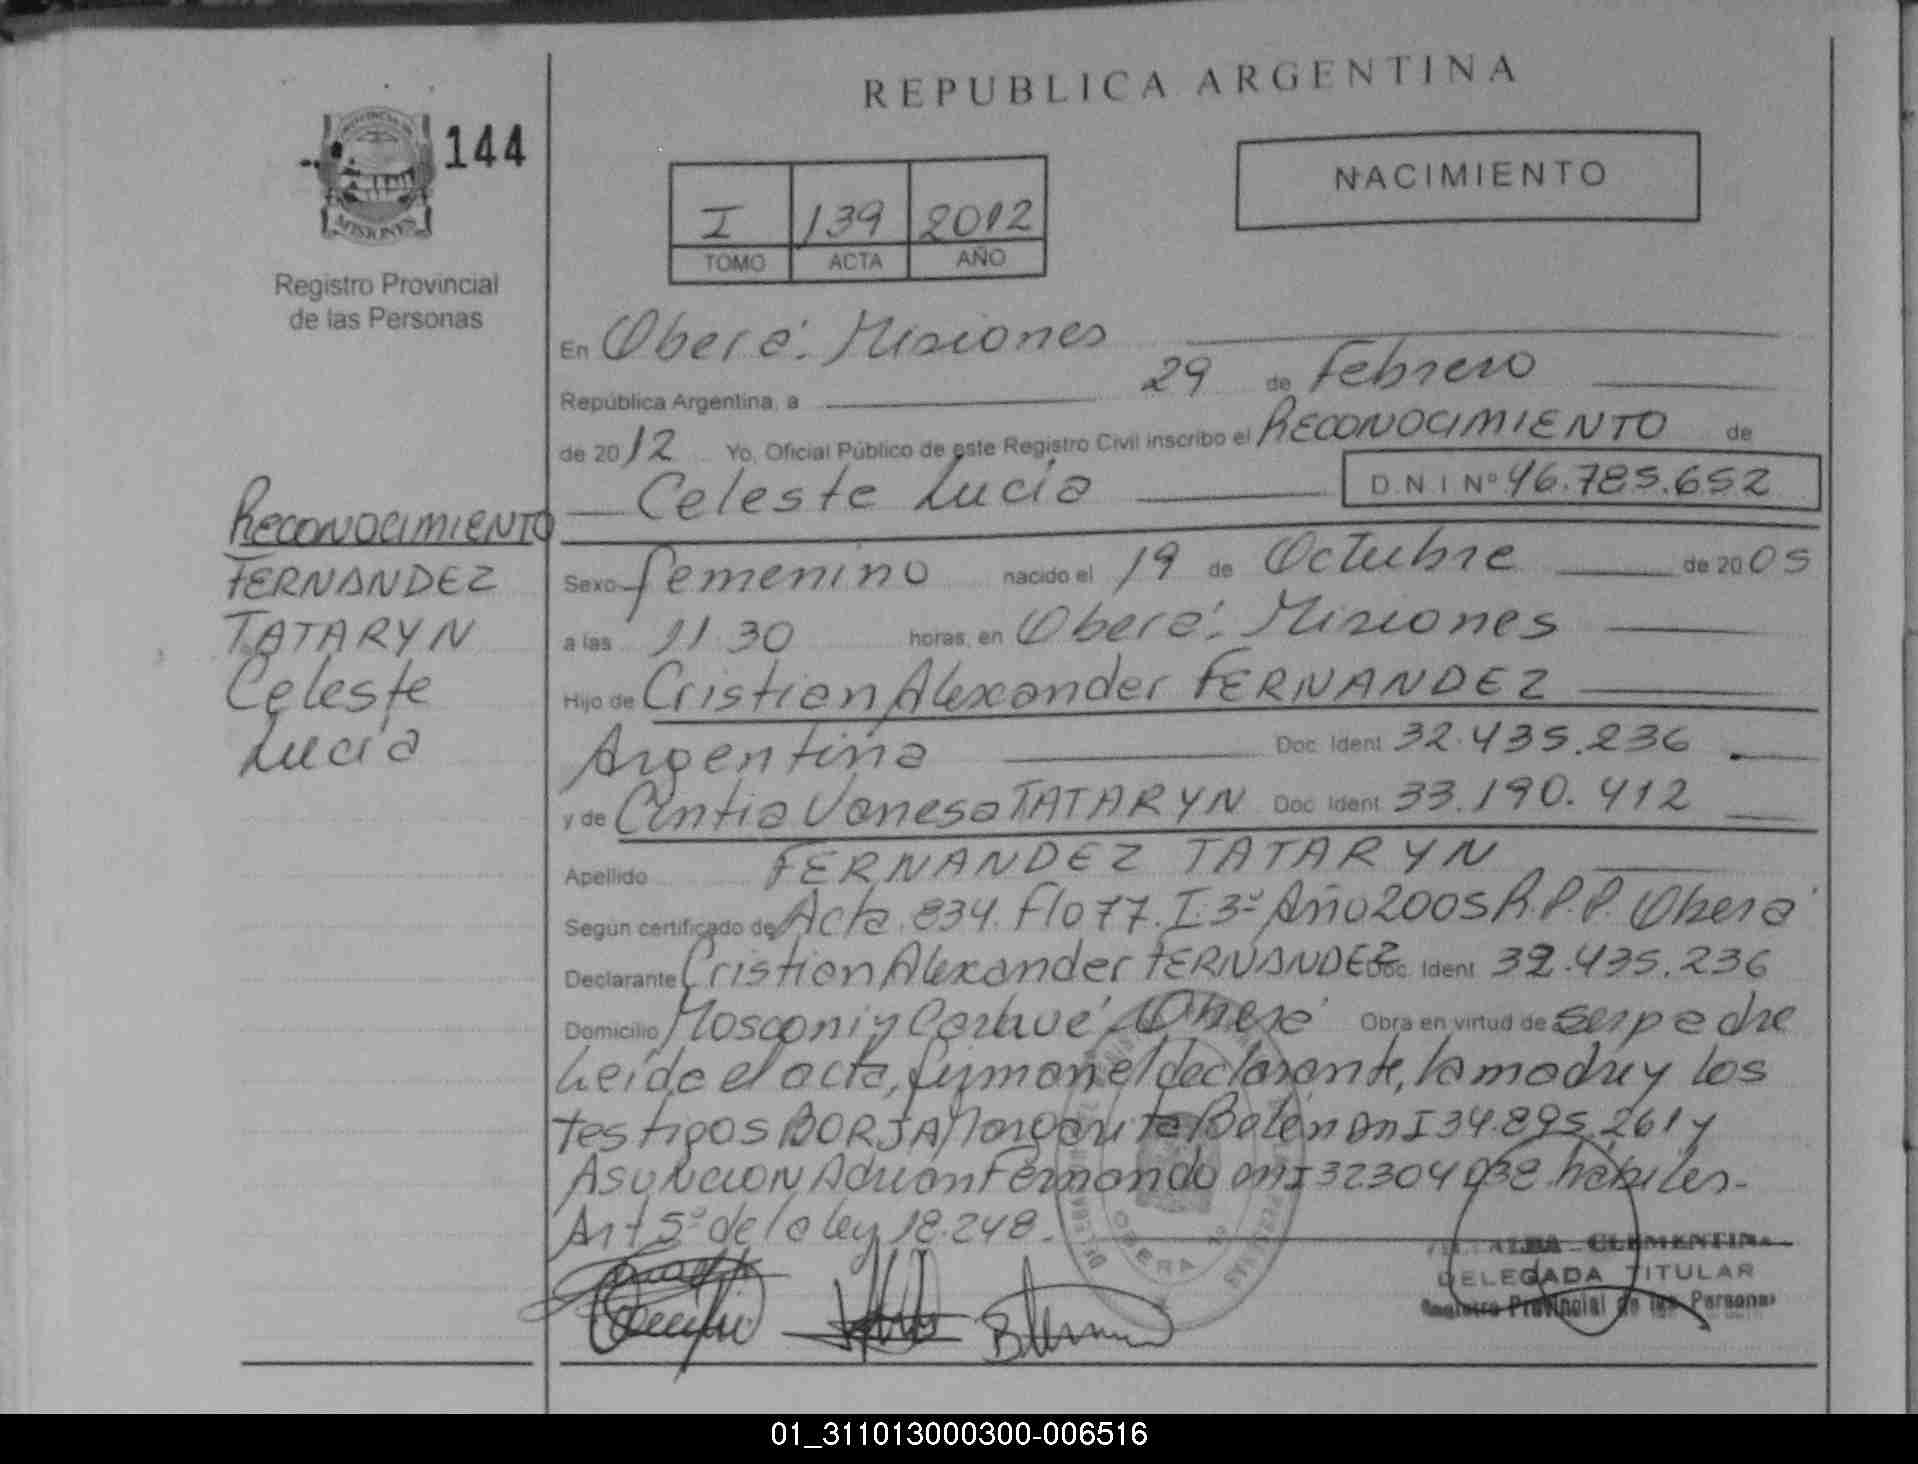 REPUBLICA ARGENTINA
144
MISIONES
Registro Provincial
de las Personas
NACIMIENTO
I 139 2012
TOMO ACTA AÑO
En Oberá. Misiones
República Argentina, a 29 de Febrero
de 2012 Yo, Oficial Público de este Registro Civil inscribo el RECONOCIMIENTO de
Celeste Lucía D.N.I Nº 46.785.652
RECONOCIMIENTO
FERNANDEZ
TATARYN
Celeste
Lucía
Sexo femenino nacido el 19 de Octubre de 2005
a las 11 30 horas, en Oberá. Misiones
Hijo de Cristian Alexander FERNANDEZ
Argentina Doc. Ident 32.435.236
y de Cintia Vanesa TATARYN Doc. Ident 33.190.412
Apellido FERNANDEZ TATARYN
Según certificado de Acta 834. Flo 77. I. 3º Año 2005 R.P.P. Oberá
Declarante Cristian Alexander FERNANDEZ Doc. Ident 32.435.236
Domicilio Mosconi y Oberá Obra en virtud de ser padre
Leída el acta, firman el declarante, la madre y los
testigos BORJA Margarita Belén DNI 34.895.261 y
ASUNCION Adrian Fernando DNI 32304032 hábiles.
Art 5º de la ley 18.248.
OBERA
CLEMENTINA
DELEGADA TITULAR
Registro Provincial de las Personas
01_311013000300-006516